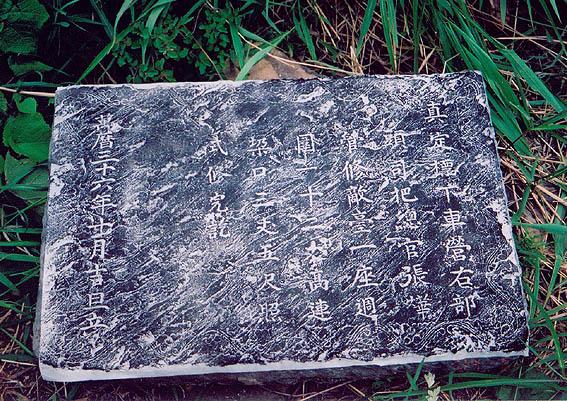 真定標下車營右部
頭司把總官張
増修敵臺一座週
圍一十二丈高連
垜口三丈五尺照
式修完記
萬曆三十六年廿月吉旦立